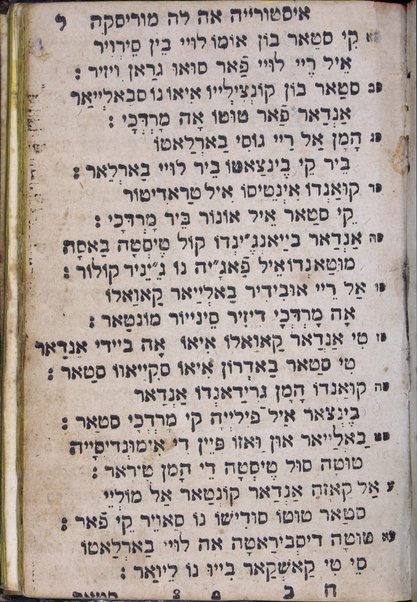 איסטורייה אה לה מוריסקה ל
סא קי סטאר בון אומו לויי בין סירויר
איל ריי לויי פֿאר סואו גראן ויזיר :
סב סטאר בון קונצילייו איאו נו סבאלייאר
אַנְדאר פֿאר טוטו אָה מָרְדְכָי :
סג הָמָן אַל רֵיי גוסי בַּארְלַאטו
ביר קי בֵינצַאטו ביר לויי בַּארלַאר :
סד קוַאנדו אִינְטֵיסו אִיל טרַאדיטור
קי סטאר אִיל אונור בֵּיר מָרְדְכַי :
סה אַנְדאר בייַאנגֵ׳ינְדו קול טֵיסטָה בַּאסָה
מוטַאנדו אִיל פַֿאגִ׳יה נו גֵ׳ניר קולור :
סו אַל ריי אובידיר בַּאלייאר קַאוַאלו
אָה מָרְדְכַי דיזיר סֵינייור מונטַאר :
סז טי אַנדַאר קַאוַאלו אִיאו אָה ביידי אנדַאר
טי סטאר בַּאדרון אִיאו סקייאוו סטַאר :
סח קוַאנדו הָמָן גרידַאנדו אַנדַאר
בֵינצַאר אִיל פֿילייה קי מרדכי סטאר :
סט בַּאלייאר און וַאזו פיין די אימונדיסייה
טוטה סול טֵיסטָה די הָמן טיראר :
ע אַל קַאזה אַנדַאר קונטַאר אַל מולייי
סטאר טוטו סודישו נו סַאויר קי פֿאר :
עא טוטה דיסביראטה אה לויי בַּארלַאטו
סי טי קַאשקַאר בייו נו ליוַאר :
ח ב